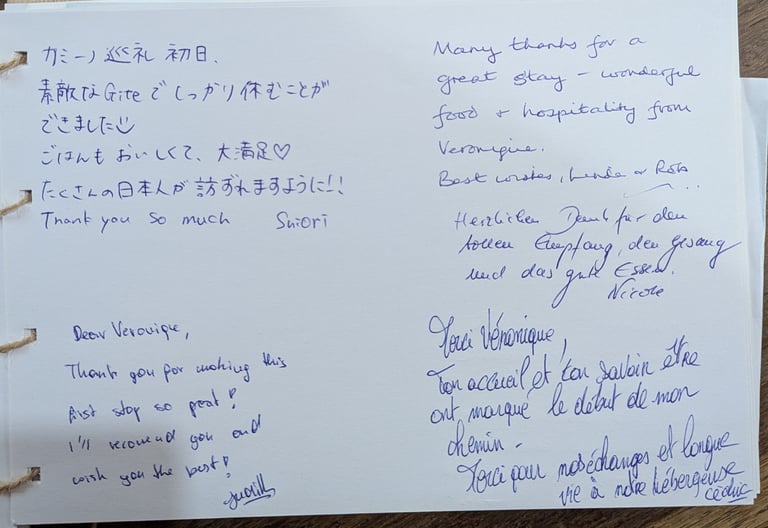 カミーノ巡礼 初日、
素敵なGiteでしっかり休むことが
できました
ごはんもおいしくて、大満足♡
たくさんの日本人が訪ずれますように!!
Thank you so much Shiori
Dear Veronique,
Thank you for making this
first stop so great!
I'll recomend you and
wish you the best!
Many thanks for a
great stay – wonderful
food + hospitality from
Veronique.
Best wishes, Linda & Rob
Herzlichen Dank für den
tollen Empfang, den Gesang
und das gute Essen.
Nicole
Merci Véronique,
Ton accueil et ton savoir être
ont marqué le début de mon
chemin -
Merci pour nos échanges et longue
vie à notre hébergeuse
Cédric